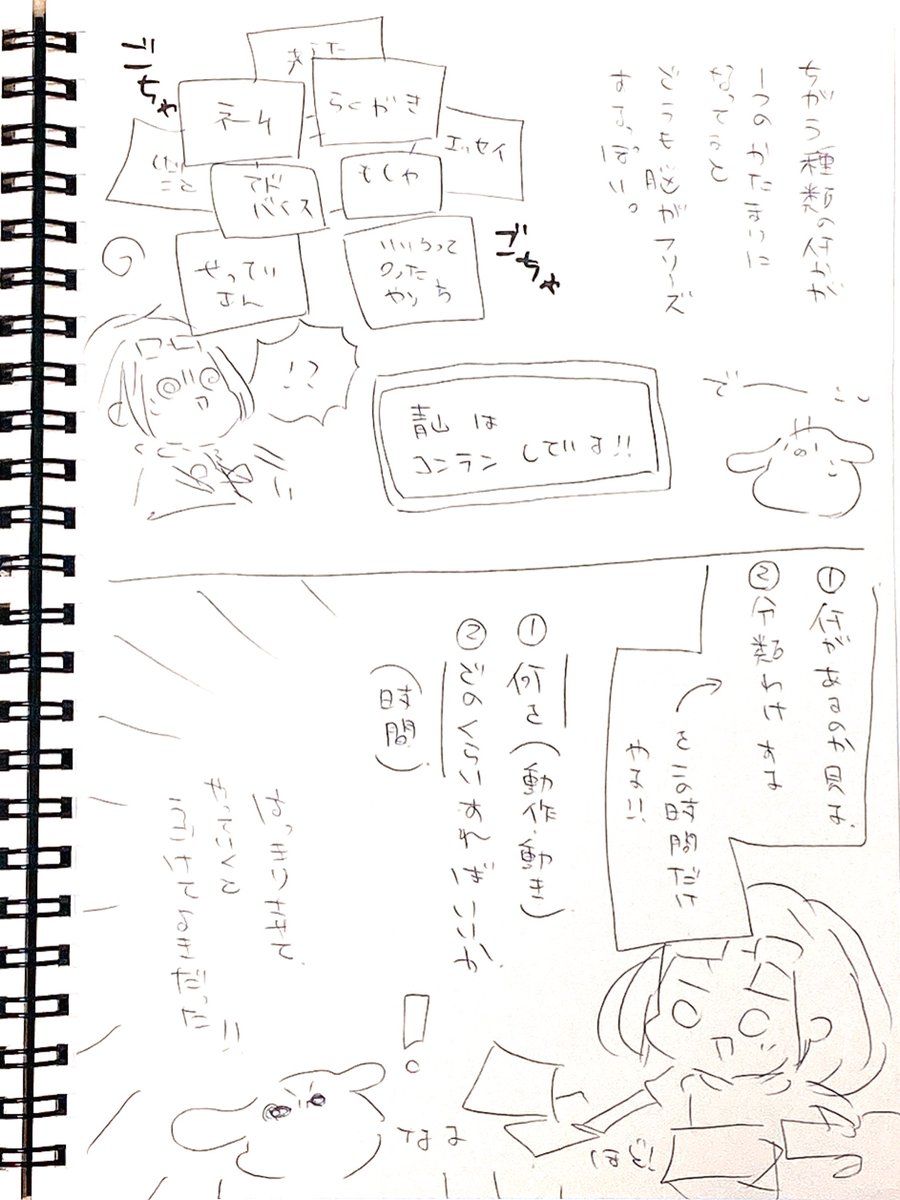 ちがう種類の何かが
1つのかたまりに
なってると
どうも脳がフリーズ
するっぽい。
ごちゃ
ネーム
らくがき
エッセイ
アド
バイス
もしゃ
せってい
さん
いいなって
のった
やりち
ごちゃ
!?
でーーん
青山は
コンランしている!!
①何があるのか見る
②分類わけする
をこの時間だけ
やる!!
①何を(動作・動き)
②どのくらいすればいいか
(時間)
はっきりさせて
おくと
!
なる